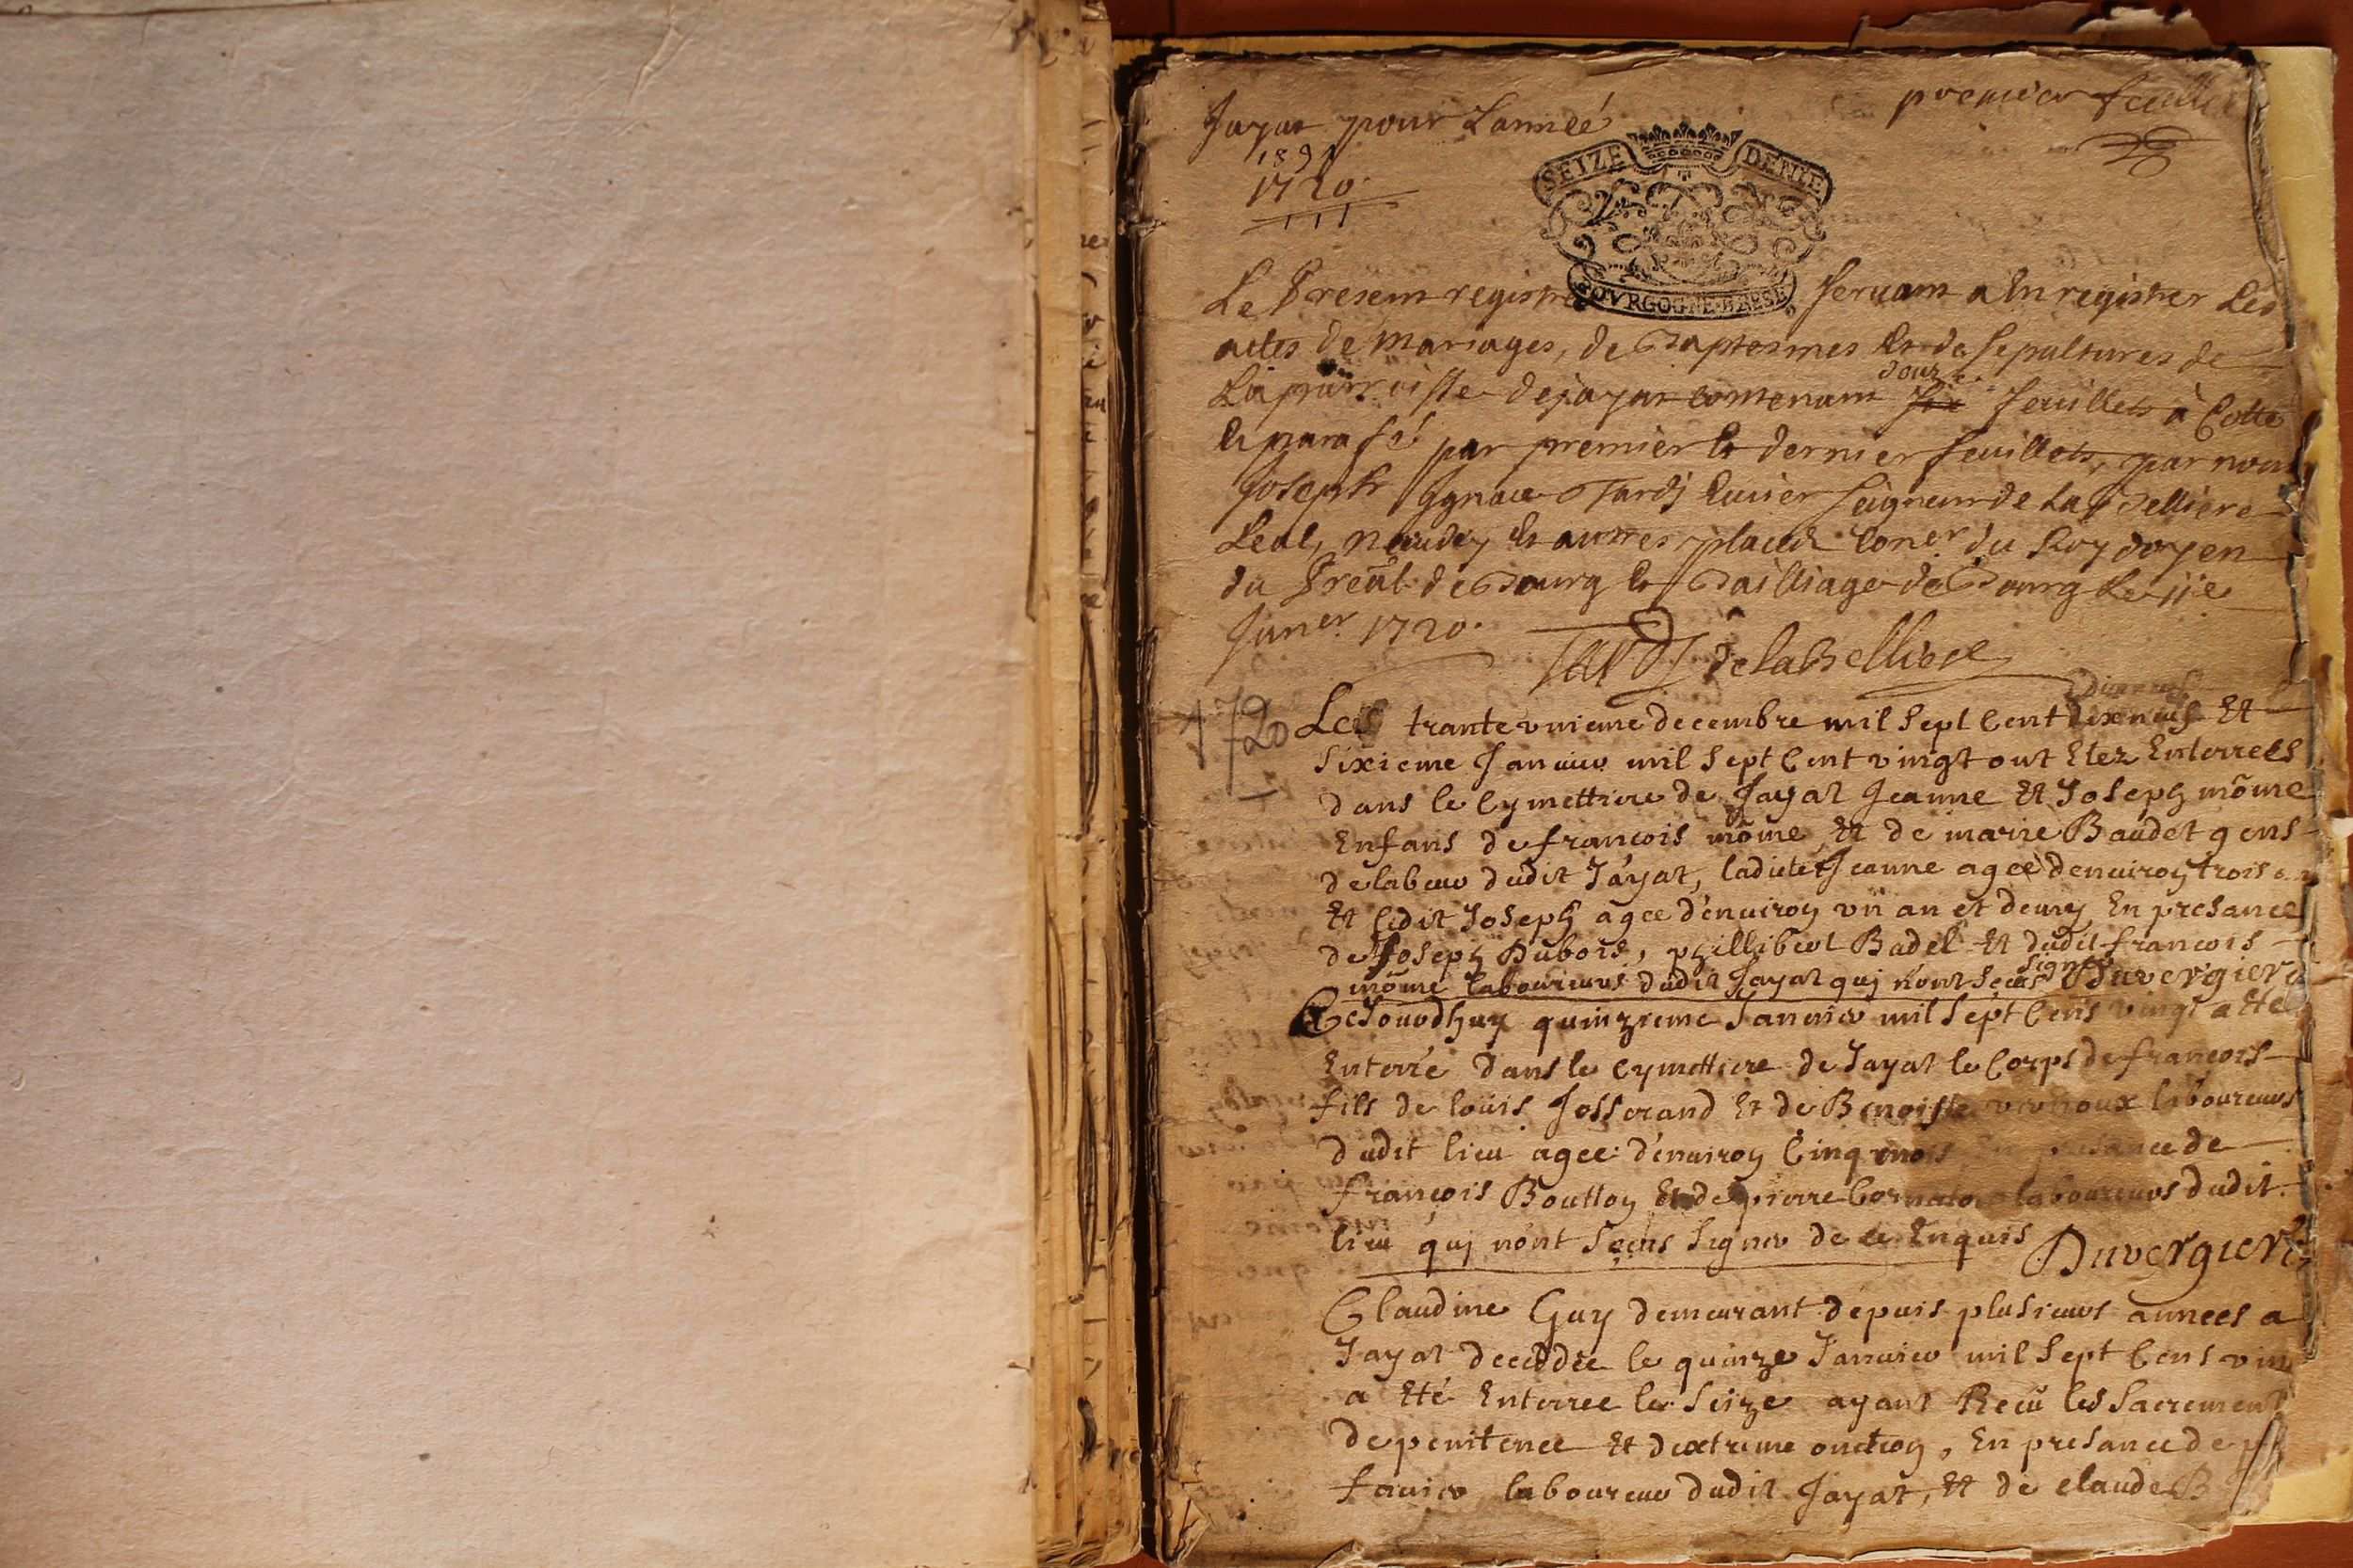 Jayat pour Lanneé
premier feuillet
1891
1720
SEIZE DENIE
BOVRGOGNE BRESE
Le Present registre servant a Enregistrer Les
actes de mariages, de Baptesmes Et de sepultures de
La parroisse de jayat contenant douze feuillets à Cotte
Et parafé par premier Et dernier feuillets, par nous
Joseph Ygnace Tardy Ecuier seigneur de La Belliere
Leal, Et autres places Coner du Roy doyen
du Preãl de Bourg Et Bailliage de Bourg Le 11e
Janer 1720.
Tardy de laBelliere
1720
Dixneuf
Les trante vnieme decembre mil sept Cent Dixneuf Et
sixieme Janvier mil sept Cent vingt ont Etez Enterrees
dans le Cymettiere de Jayat Jeanne Et Joseph môme
Enfans de francois môme Et de marie Baudet gens
de labeur dudit Jayat, ladicte Jeanne agee denuiron trois
Et ledit Joseph agee d'enuiron vn an et demy En presance
de Joseph Dubois, phillibert Badel Et dudit francois
môme laboureurs dudit Jayat quj nont sceus signer Duvergier
Cejourdhuy quinzieme Janvier mil sept Cens vingt a Ete
Enterré dans le Cymettiere de Jayat le Corps de françois
fils de loüis Josserand Et de Benoiste laboureurs
dudit lieu agee d'enuiron Cinq mois En presance de
françois Boutton Et de pierre laboureurs dudit
lieu quj nont sceus signer de ce Enquis Duvergier
Claudine Guy demeurant depuis plusieurs annees a
Jayat decedée le quinze Janvier mil sept Cens vin
a Eté Enterree le seize ayant Recü les sacrement
de penitence Et dextreme onction, En presance de
laboureur dudit Jayat, Et de claude B